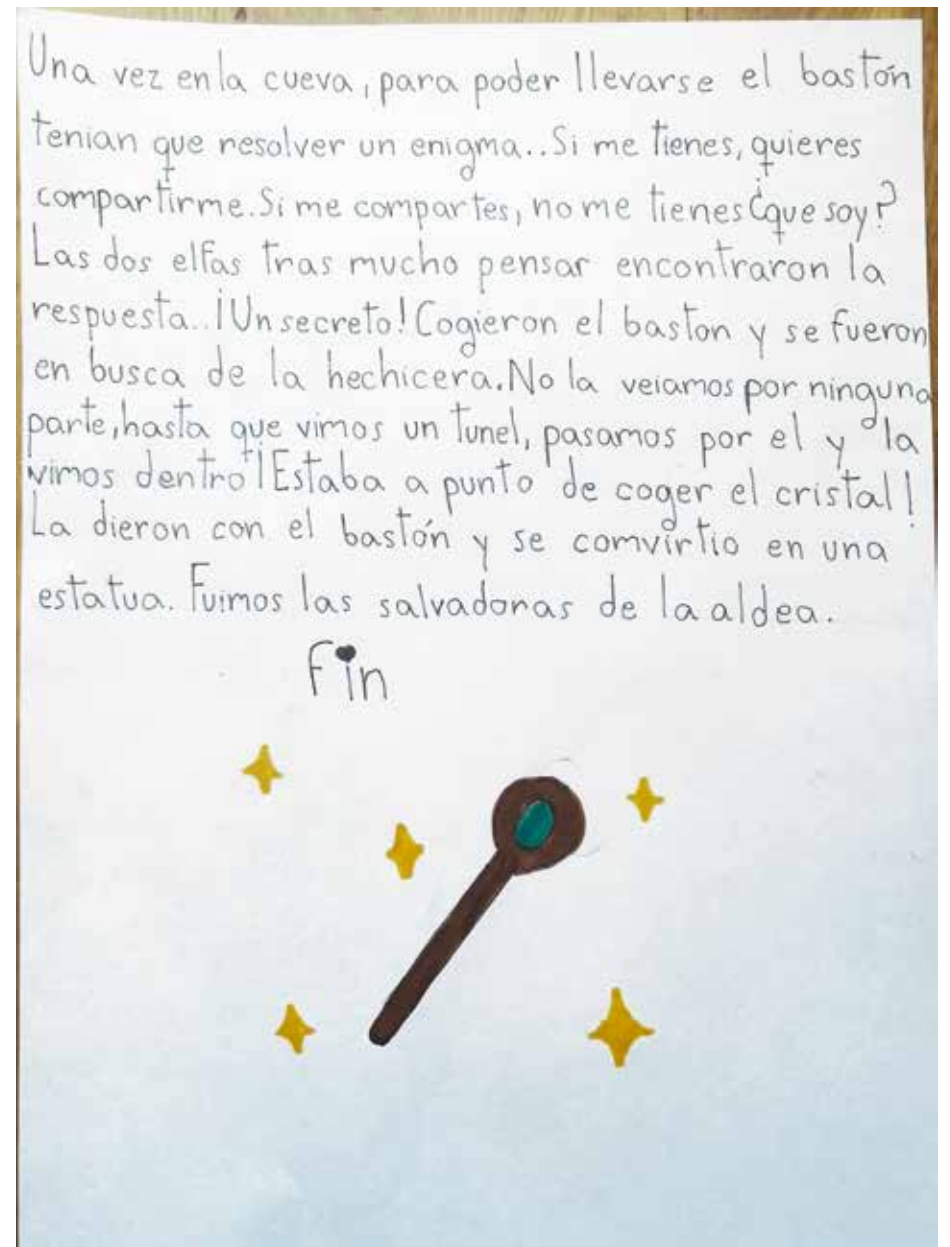 Una vez en la cueva, para poder llevarse el bastón
tenian que resolver un enigma.. Si me tienes, quieres
compartirme. Si me compartes, no me tienes ¿que soy?
Las dos elfas tras mucho pensar encontraron la
respuesta.. ¡Un secreto! Cogieron el baston y se fueron
en busca de la hechicera. No la veiamos por ninguna
parte, hasta que vimos un tunel, pasamos por el y la
vimos dentro ¡Estaba a punto de coger el cristal!
La dieron con el bastón y se comvirtio en una
estatua. Fuimos las salvadoras de la aldea.
Fin